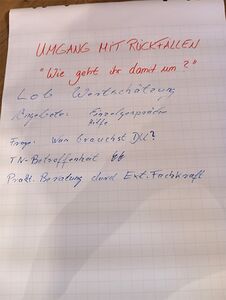 UMGANG MIT RÜCKFÄLLEN
"Wie geht ihr damit um?"
Lob Wertschätzung
Angebote: Einzelgespräche
Hilfe
Frage: Was brauchst Du?
TN-Betroffenheit
Prakt. Beratung durch Ext. Fachkraft